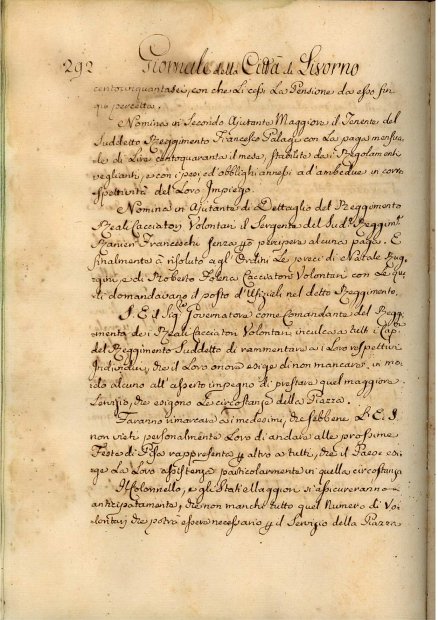 292 Giornale della Città di Livorno
centocinquantasei, con che li cessi La Pensione da esso fin
qui percetta.
Nomina in Secondo Ajutante Maggiore il Tenente del
Suddetto Reggimento Francesco Palagi con La paga mensua
le di Lire centoquaranta il mese, stabilita dai Regolamenti
veglianti, e con i pesi, ed obblighi annessi ad ambedue in corre
spettività del Loro Impiego.
Nomina in Ajutante di Dettaglio del Reggimento
Reali Cacciatori Volontarj il Sergente del Sud.º Reggim.to
Ranieri Franceschi senza però percipere alcuna paga. E
finalmente à risoluto agl' Ordini Le preci di Natale
e di Roberto Cacciatori Volontarj con Le qua
li domandavano il posto d'Ufiziali nel detto Reggimento.
S. E. il Sig.r Governatore come Comandante del Regg
imento de i Reali Cacciatori Volontarj inculca a tutti i Capi
del Reggimento Suddetto di rammentare a i Loro respettivi
Individui, che il Loro onore esige di non mancare in mo
do alcuno all' asserto impegno di prestare quel maggiore
Servizio, che esigono Le circostanze della Piazza.
Faranno rimarcare ai medesimi, che sebbene L' E. S.
non vieti personalmente Loro di andare alle prossime
Feste di Pisa rappresenta però altro a tutti, che il Paese esi
ge La Loro assistenza particolarmente in quella circostanza
Il Colonnello, e gli Stati Maggiori si assicureranno
anticipatamente, che non manchi tutto quel Numero di Vo
lontarj che potrà essere necessario per il Servizio della Piazza